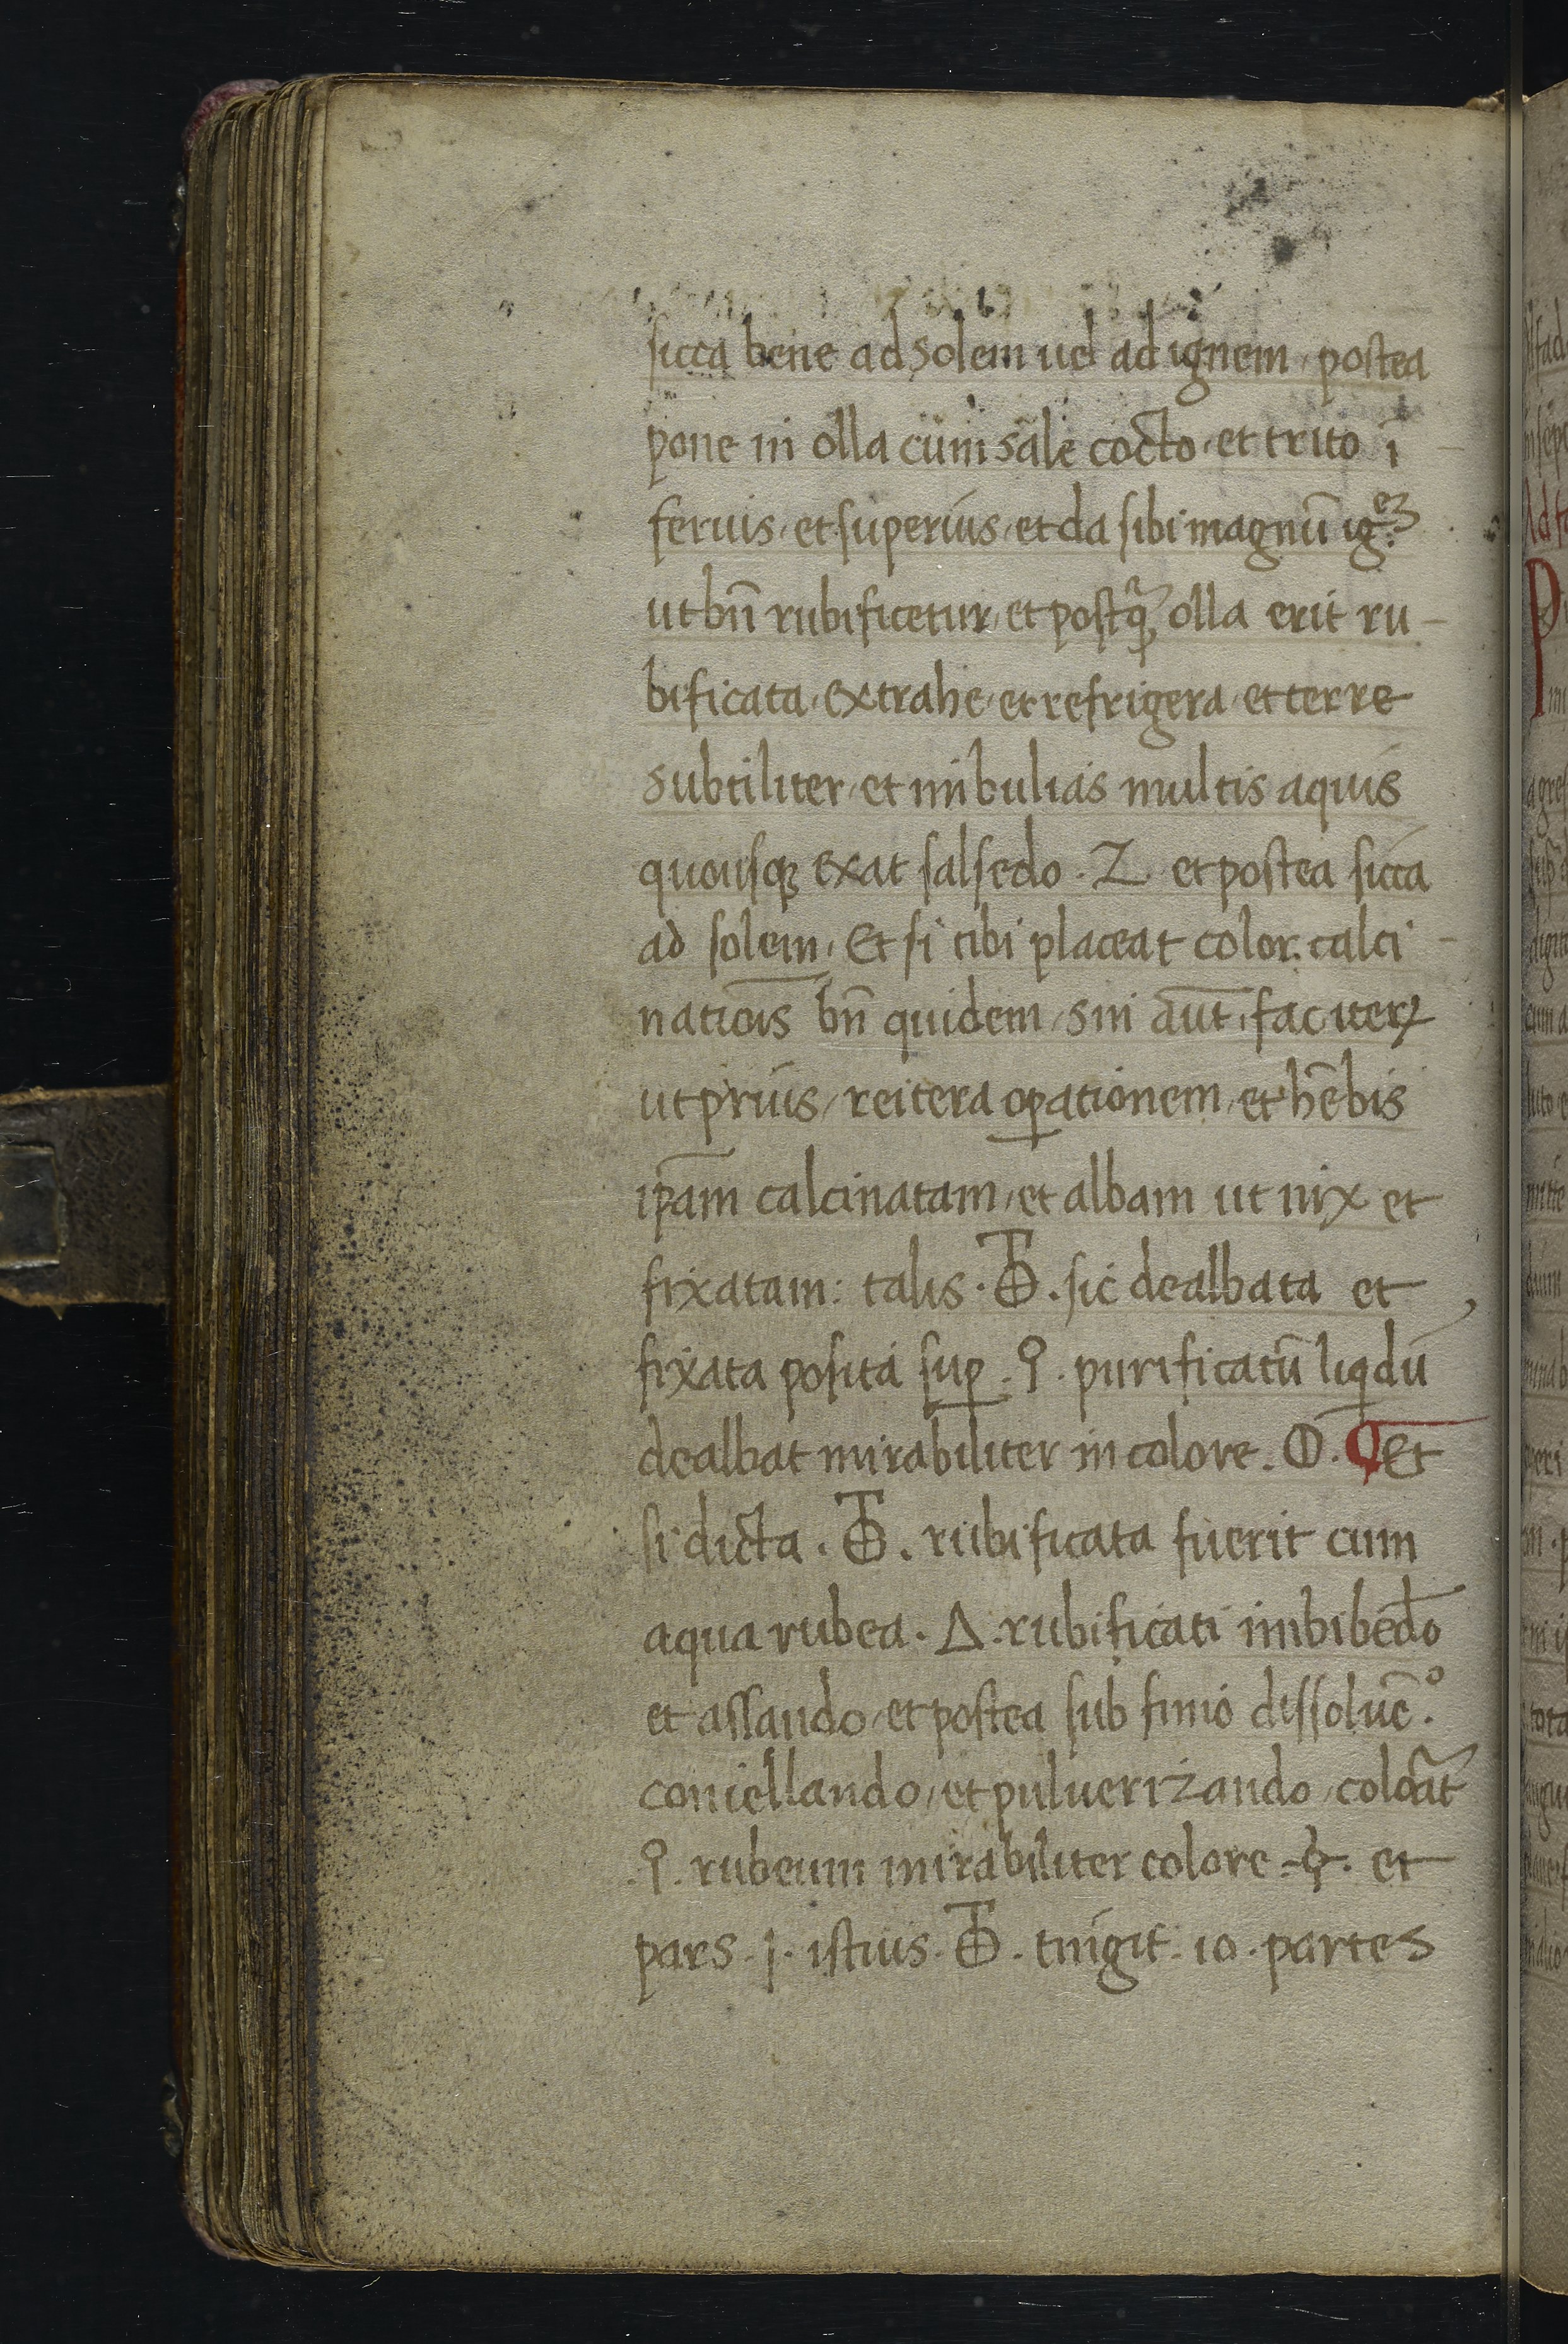 sicca bene ad solem uel ad ignem, postea
pone in olla cum sale cocto, et trito i
feruis, et superius, et da sibi magnū ig.eȝ
ut bn̄ rubificetur, et postqᷓ olla erit ru-
bificata, extrahe, et refrigera, et terre
subtiliter, et imbulias multis aquis
quousqȝ exat salsedo. Z et postea sicca
ad solem, Et si tibi placeat color. calci-
natiōis bn̄ quidem, sin aūt, fac iterꝝ
ut prius, reitera oꝑationem, et hēbis
ip̄am calcinatam, et albam ut nix et
fixatam: talis. 🜨. sic dealbata et
fixata posita suꝑ. ♀. purificatū liqdū
dealbat mirabiliter in colore. ☽. ¶ Et
si dicta. 🜨. rubificata fuerit cum
aqua rubea. 🜂. rubificati imbibēdo
et assando, et postea sub fimo dissoluē.o
coniellando, et puluerizando, coloāt
.♀. rubeum mirabiliter colore .☉. et
pars. j. istius. 🜨. tingit. 10. partes